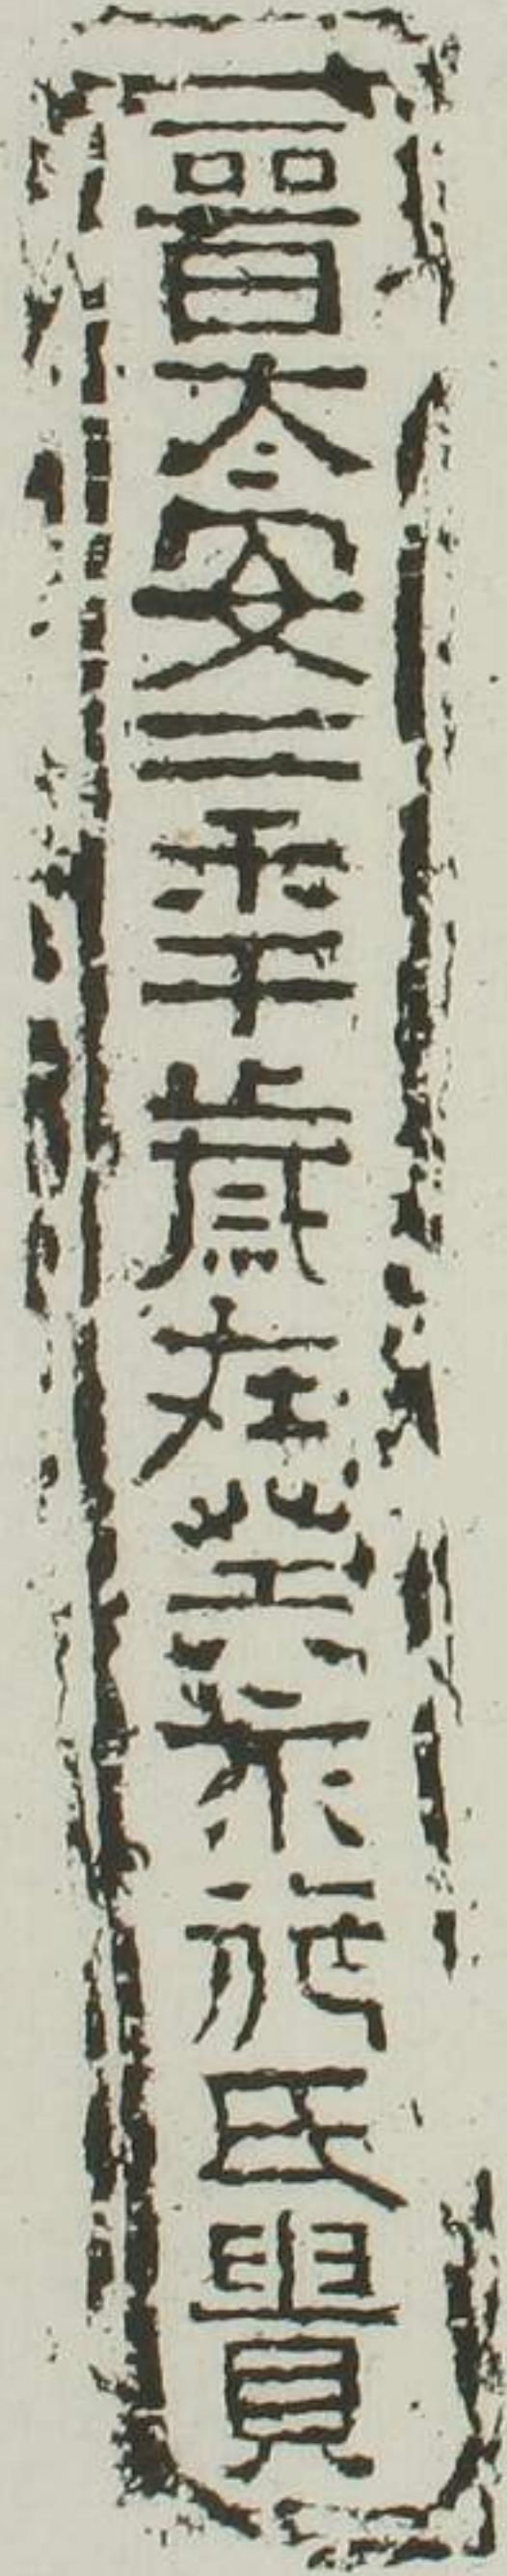 晉太安二年歲在癸亥施氏貴